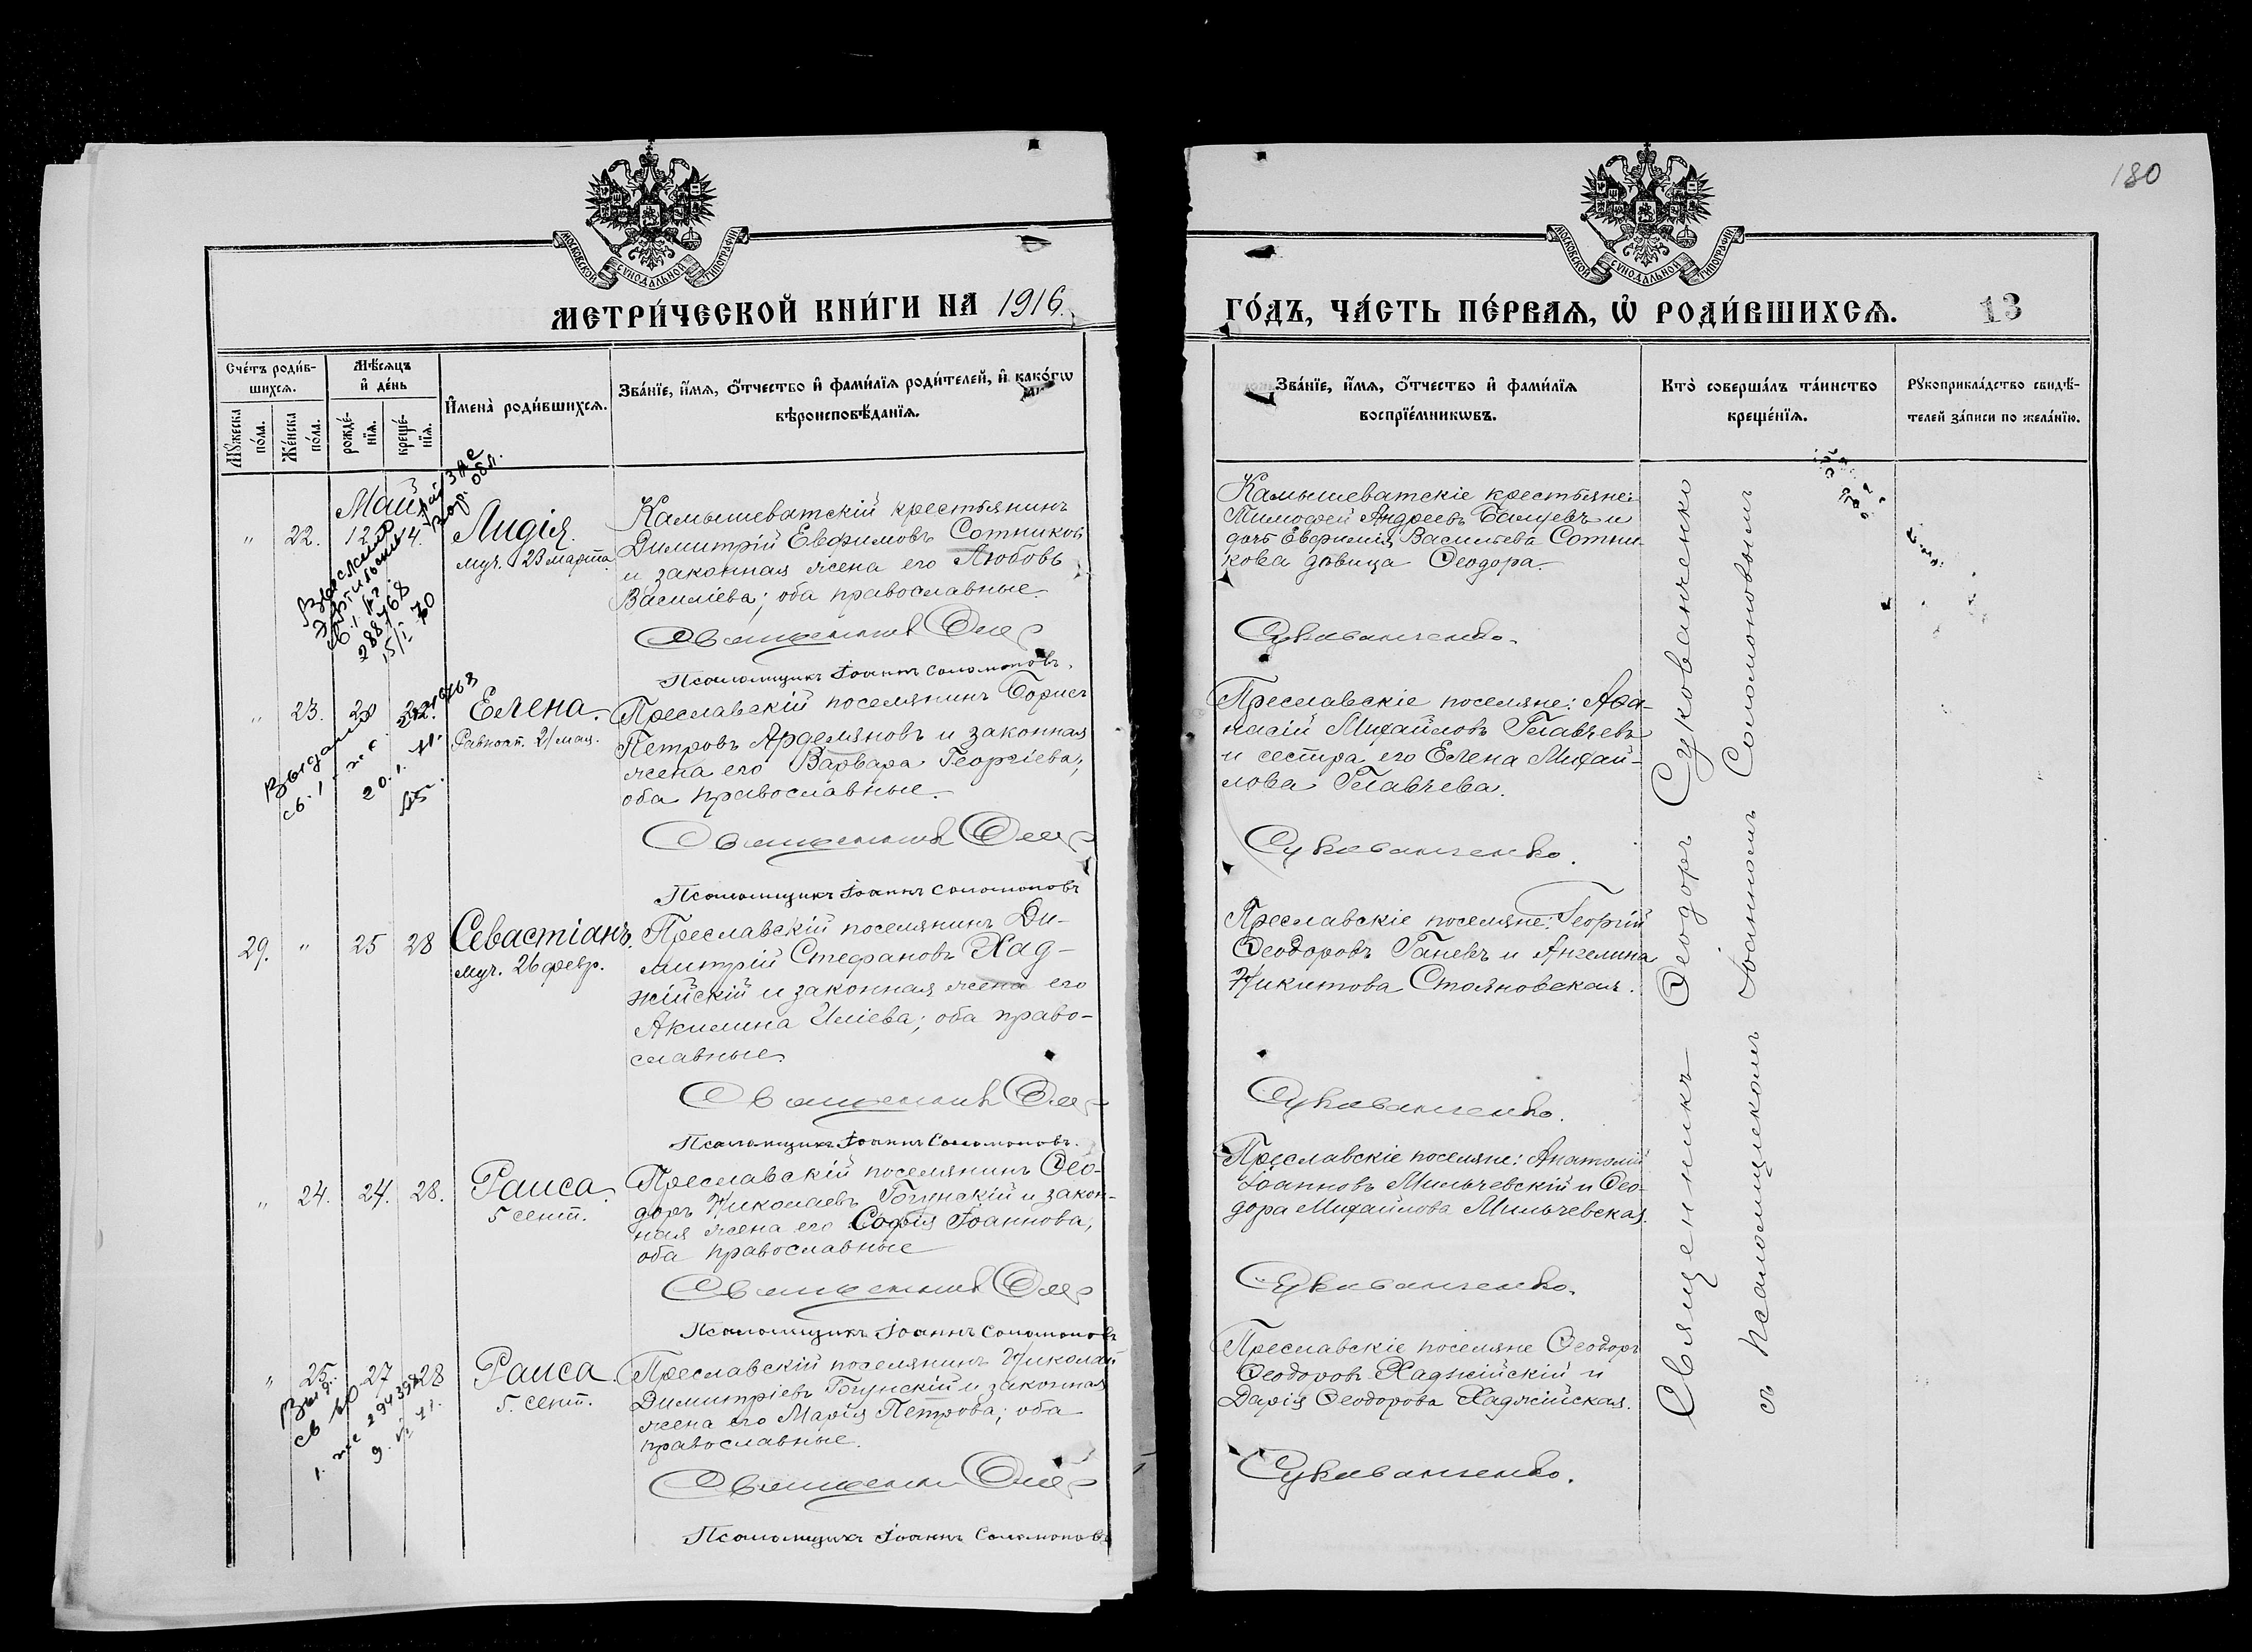 180
МОСКОВСКОЙ СѴНОДАЛЬНОЙ ТИПОГРАФІИ
МОСКОВСКОЙ СѴНОДАЛЬНОЙ ТИПОГРАФІИ
МЕТРИ́ЧЕСКОЙ КНИ́ГИ НА 1916.
ГО́ДЪ, ЧА́СТЬ ПЕ́РВАЯ, Ѡ҆ РОДИ́ВШИХСЯ. 13
Сче́тъ роди́в-
шихся.
Мѣ́сяцъ
и҆ де́нь
Мꙋ́жеска
по́ла.
Же́нска
по́ла.
рожде́-
нїя.
креще́-
нїя.
И҆мена̀ роди́вшихся.
Зва́нїе, и҆́мя, ѻ҆́тчество и҆ фами́лїя роди́телей, и҆ како́гѡ
вѣроисповѣ́данїя.
Зва́нїе, и҆́мя, ѻ҆́тчество и҆ фами́лїя
воспрїе́мникѡвъ.
Кто̀ соверша́лъ та́инство
креще́нїя.
Рꙋкоприкла́дство свидѣ́-
телей за́писи по жела́нїю.
Май
" 22. 12 14. Лидія.
муч. 23 марта
Камышеватскій крестьянинъ
Димитрій Евфимовъ Сотников
и законная жена его Любовь
Василіева; оба православные
Священникъ Ѳео
Псаломщикъ Іоаннъ Соломоновъ.
Камышеватскіе крестьяне:
Тимофей Андреевъ и
дочь Евфимія Васильева Сотни-
кова дѣвица Ѳеодора.
Сукованченко.
288768
15/I 70
" 23. 20 22. Елена.
Равноап. 21 мая.
Преславскій поселянинъ Борисъ
Петровъ Арделяновъ и законная
жена его Варвара Георгіева,
оба православные.
Священникъ Ѳео
Псаломщикъ Іоаннъ Соломоновъ
Преславскіе поселяне: Аѳа-
насій Михайловъ Главчевъ
и сестра его Елена Михай-
лова Главчева.
Сукованченко.
29. " 25 28 Севастіанъ.
муч. 26 февр.
Преславскій поселянинъ Ди-
митрій Стефановъ Хад-
жійскій и законная жена его
Акилина Иліева; оба право-
славные
Священникъ Ѳео
Псаломщикъ Іоаннъ Соломоновъ.
Преславскіе поселяне: Георгій
Ѳеодоровъ Ганевъ и Ангелина
Никитова Стояновская.
Сукованченко.
" 24. 24. 28. Раиса.
5 сент.
Преславскій поселянинъ Ѳео-
доръ Николаевъ Бгунскій и закон-
ная жена его Софія Іоаннова;
оба православные
Священникъ Ѳео
Псаломщикъ Іоаннъ Соломоновъ
Преславскіе поселяне: Анатолій
Іоанновъ Мильчевскій и Ѳео-
дора Михайлова Мильчевская.
Сукованченко.
" 25. 27 28 Раиса.
5. сент.
Преславскій поселянинъ Николай
Димитріевъ Бгунскій и законная
жена его Марія Петрова; оба
православные.
Священникъ Ѳео
Псаломщикъ Іоаннъ Соломоновъ
Преславскіе поселяне Ѳеодоръ
Ѳеодоровъ Хаджійскій и
Дарія Ѳеодорова Хаджійская.
Сукованченко.
Священникъ Ѳеодоръ Сукованченко
съ псаломщикомъ Іоанномъ Соломоновымъ